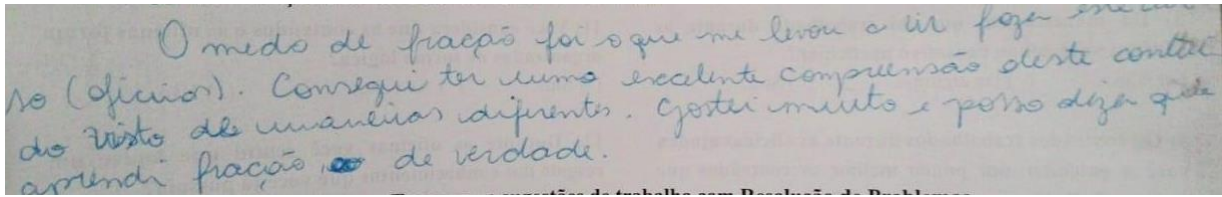 O medo de fração foi o que me levou a vir fazer este cur
so (oficinas). Consegui ter uma excelente compreensão deste conteú
do visto de maneiras diferentes. Gostei muito e posso dizer que
aprendi fração de verdade.
sugestões de trabalho com Resolução de Problemas